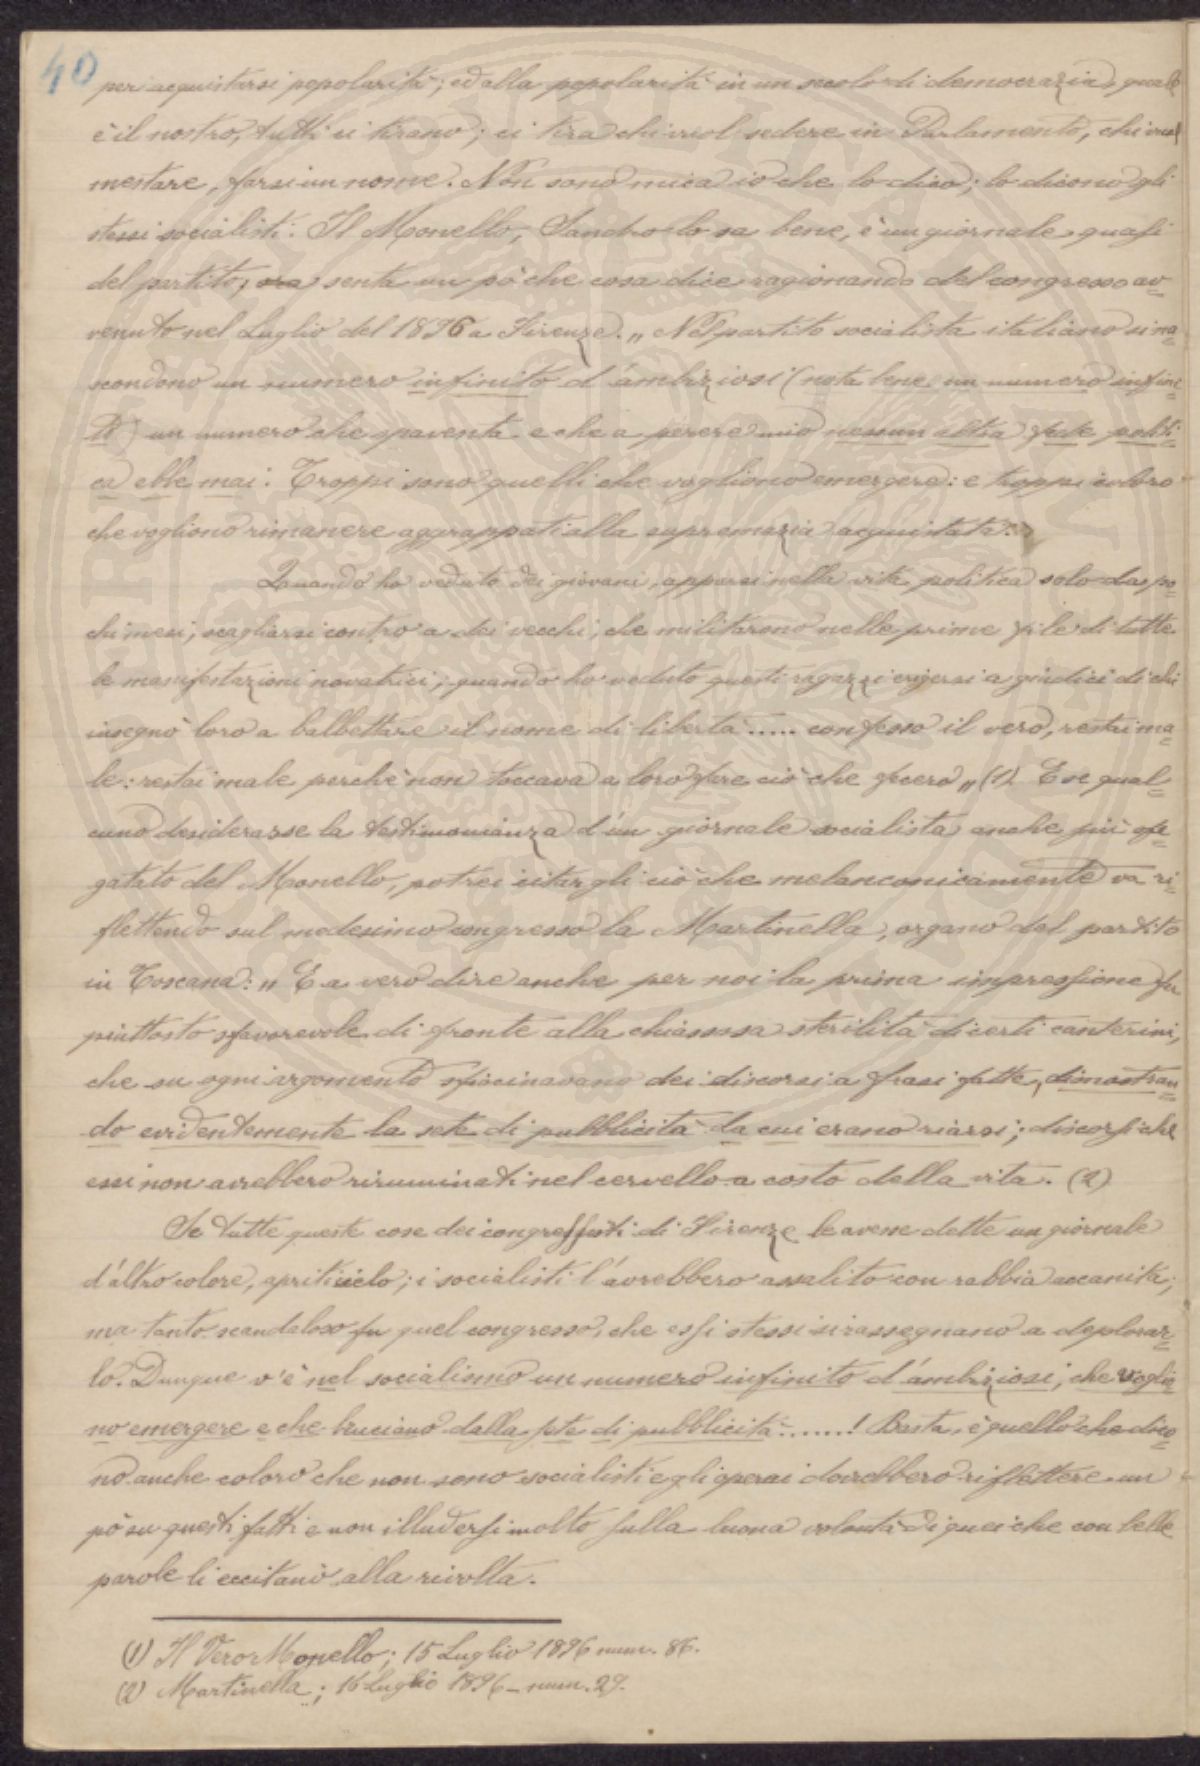 40
per acquistarsi popolarità; ed alla popolarità in un secolo di democrazia, quale
è il nostro, tutti ci tirano; ci tira chi vuol sedere in Parlamento, chi vuol
mestare, farsi un nome. Non sono mica io che lo dico; lo dicono gli
stessi socialisti. Il Monello, Sandro lo sa bene, è un giornale quasi
del partito; ora senta un pò che cosa dice ragionando del congresso av=
venuto nel Luglio del 1896 a Firenze. „ Nel partito socialista italiano si na=
scondono un numero infinito d'ambiziosi (nota bene un numero infini
to) un numero che spaventa e che a perere mio nessun altra fede politi=
ca ebbe mai. Troppi sono quelli che vogliono emergere: e troppi coloro
che vogliono rimanere aggrappati alla supremazia acquistata.
Quando ho veduto dei giovani, apparsi nella vita politica solo da po=
chi mesi, scagliarsi contro a dei vecchi, che militarono nelle prime file di tutte
le manifestazioni novatrici; quando ho veduto questi ragazzi erigersi a giudici di chi
insegnò loro a balbettare il nome di libertà ..... confesso il vero, restai ma=
le: restai male perchè non toccava a loro fare ciò che fecero „ (1). E se qual=
cuno desiderasse la testimonianza d'un giornale socialista anche più sfe=
gatato del Monello, potrei citargli ciò che melanconicamente va ri=
flettendo sul medesimo congresso la Martinella, organo del partito
in Toscana: „ E a vero dire anche per noi la prima impressione fu
piuttosto sfavorevole di fronte alla chiassosa sterilità di certi canterini,
che su ogni argomento sfiocinavano dei discorsi a frasi fatte, dimostran=
do evidentemente la sete di pubblicità da cui erano riarsi; discorsi che
essi non avrebbero riruminati nel cervello a costo della vita. (2)
Se tutte queste cose dei congressisti di Firenze le avesse dette un giornale
d'altro colore, apriti cielo; i socialisti l'avrebbero assalito con rabbia accanita;
ma tanto scandaloso fu quel congresso, che essi stessi si rassegnano a deplorar=
lo. Dunque v'è nel socialismo un numero infinito d'ambiziosi, che voglio=
no emergere e che bruciano dalla sete di pubblicità ......! Basta, è quello che dico=
no anche coloro che non sono socialisti e gli operai dovrebbero riflettere un
pò su questi fatti e non illudersi molto sulla buona volontà di quei che con belle
parole li eccitano alla rivolta.
(1) Il Vero Monello; 15 Luglio 1896 num. 86.
(2) Martinella; 16 Luglio 1896 - num. 29.